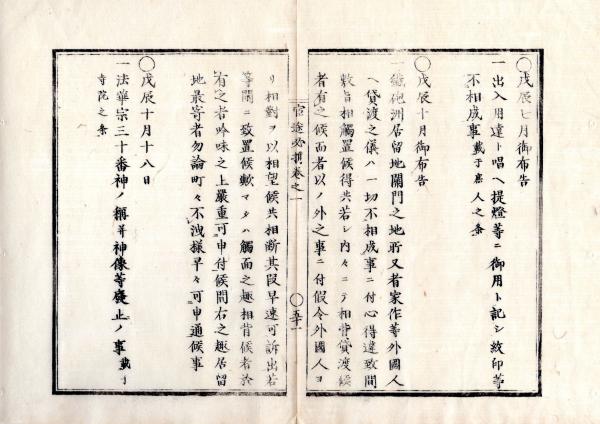 〇戊辰七月御布告
一出入用達ト唱ヘ提燈等ニ御用ト記シ紋印等
不相成事 載于商人之条
〇戊辰十月御布告
一鐵砲洲居留地關門之地所又者家作等外國人
ヘ貸渡之儀ハ一切不相成事ニ付心得違致間
敷旨相觸置候得共若シ内々ニテ相背貸渡候
者有之候而者以ノ外之事ニ付假令外國人ヨ
官途必携巻之一
〇五十一
リ相對ヲ以相望候共相断其段早速可訴出若
等閑ニ致置候歟マタハ觸面之趣相背候者於
有之者吟味之上嚴重可申付候間右之趣居留
地最寄者勿論町々不洩様早々可申通候事
〇戊辰十月十八日
一法華宗三十番神ノ稱并神像等廢止ノ事 載于
寺院之条